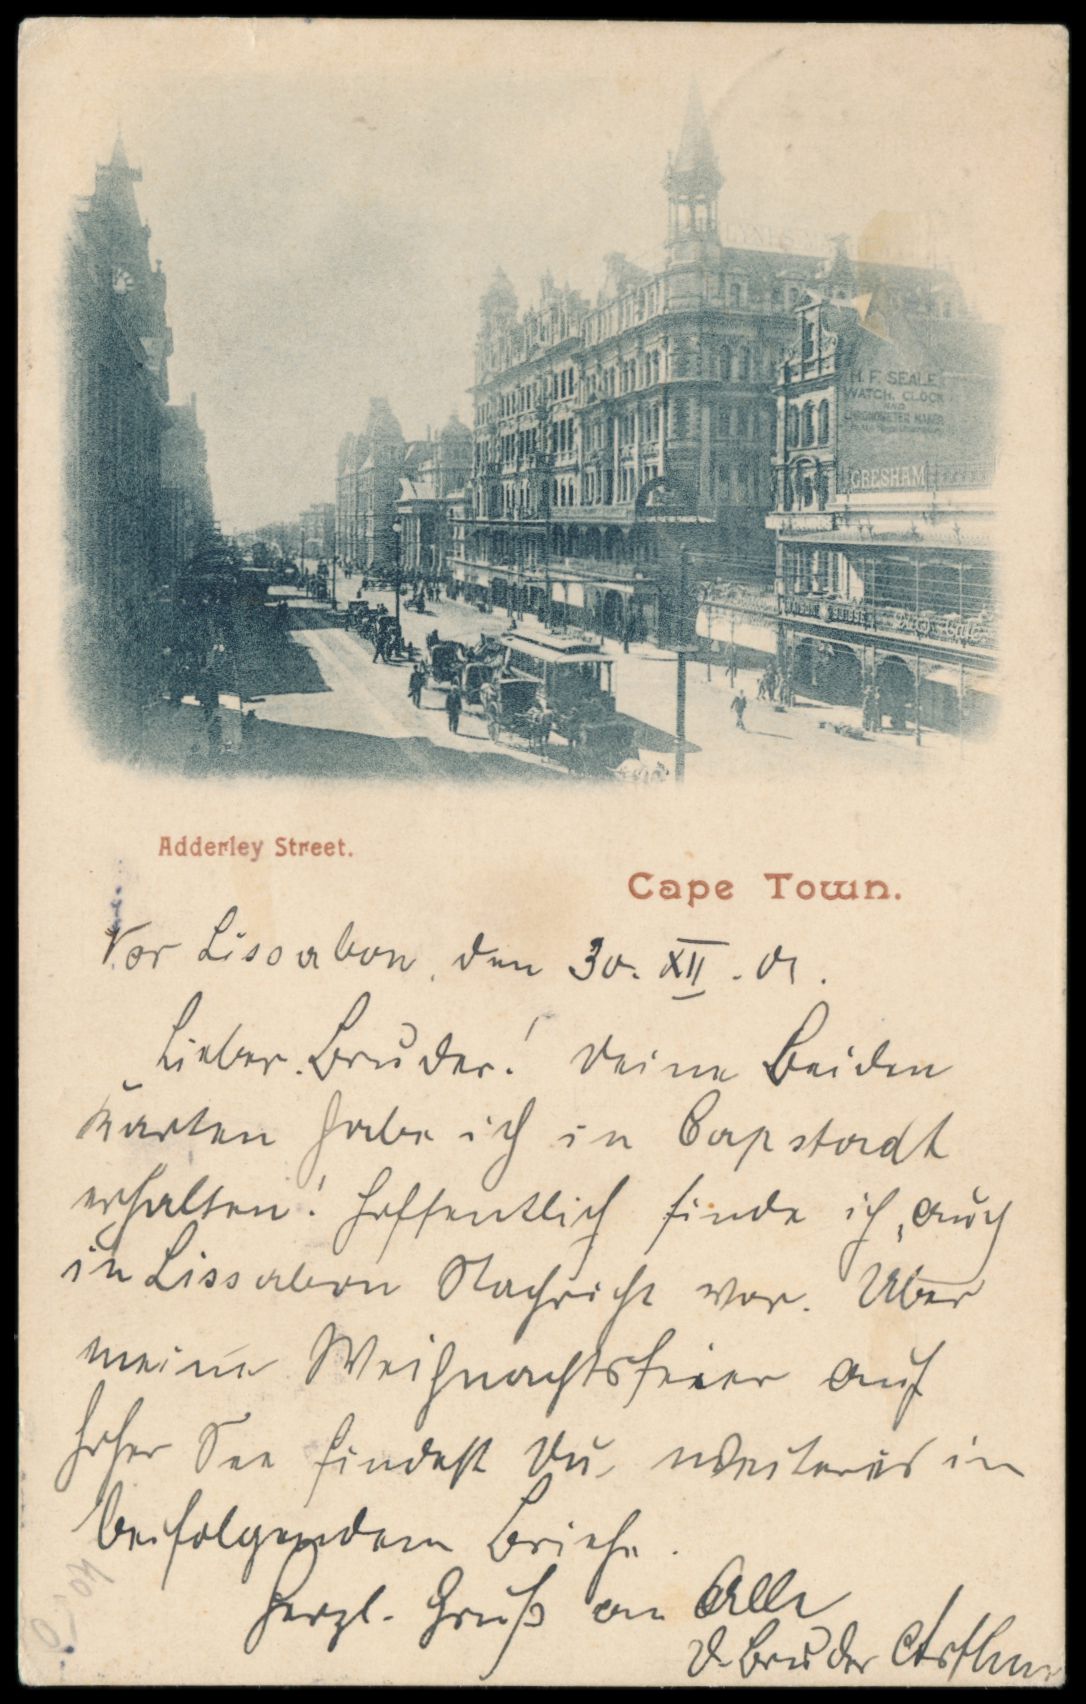 H. F. SEALE
WATCH, CLOCK
AND
CHRONOMETER MAKER
GRESHAM
Adderley Street.
Cape Town.
Vor Lissabon, den 30. XII. 01.
Lieber Bruder! Deine beiden
Karten habe ich in Capstadt
erhalten! Hoffentlich finde ich auch
in Lissabon Nachricht vor. Über
meine Weihnachtsfeier auf
hoher See findest Du, weiteres in
beifolgendem Briefe.
Herzl. Gruß an Alle
D. Bruder Arthur